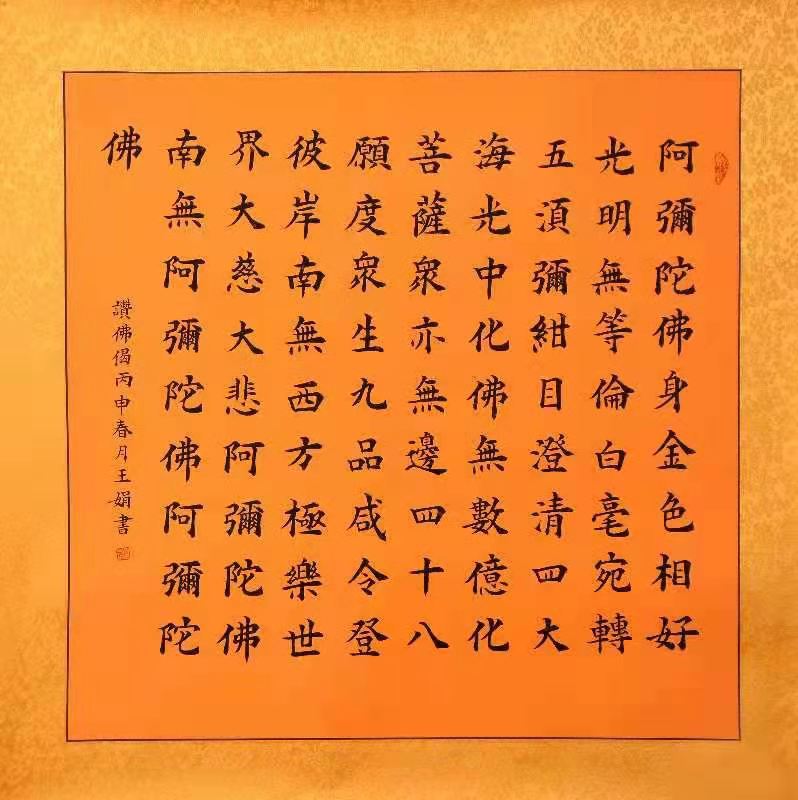 阿彌陀佛身金色相好
光明無等倫白毫宛轉
五湏彌紺目澄清四大
海光中化佛無數億化
菩薩衆亦無邊四十八
願度衆生九品咸令登
彼岸南無西方極樂世
界大慈大悲阿彌陀佛
南無阿彌陀佛阿彌陀
佛
讚佛偈丙申春月王娟書